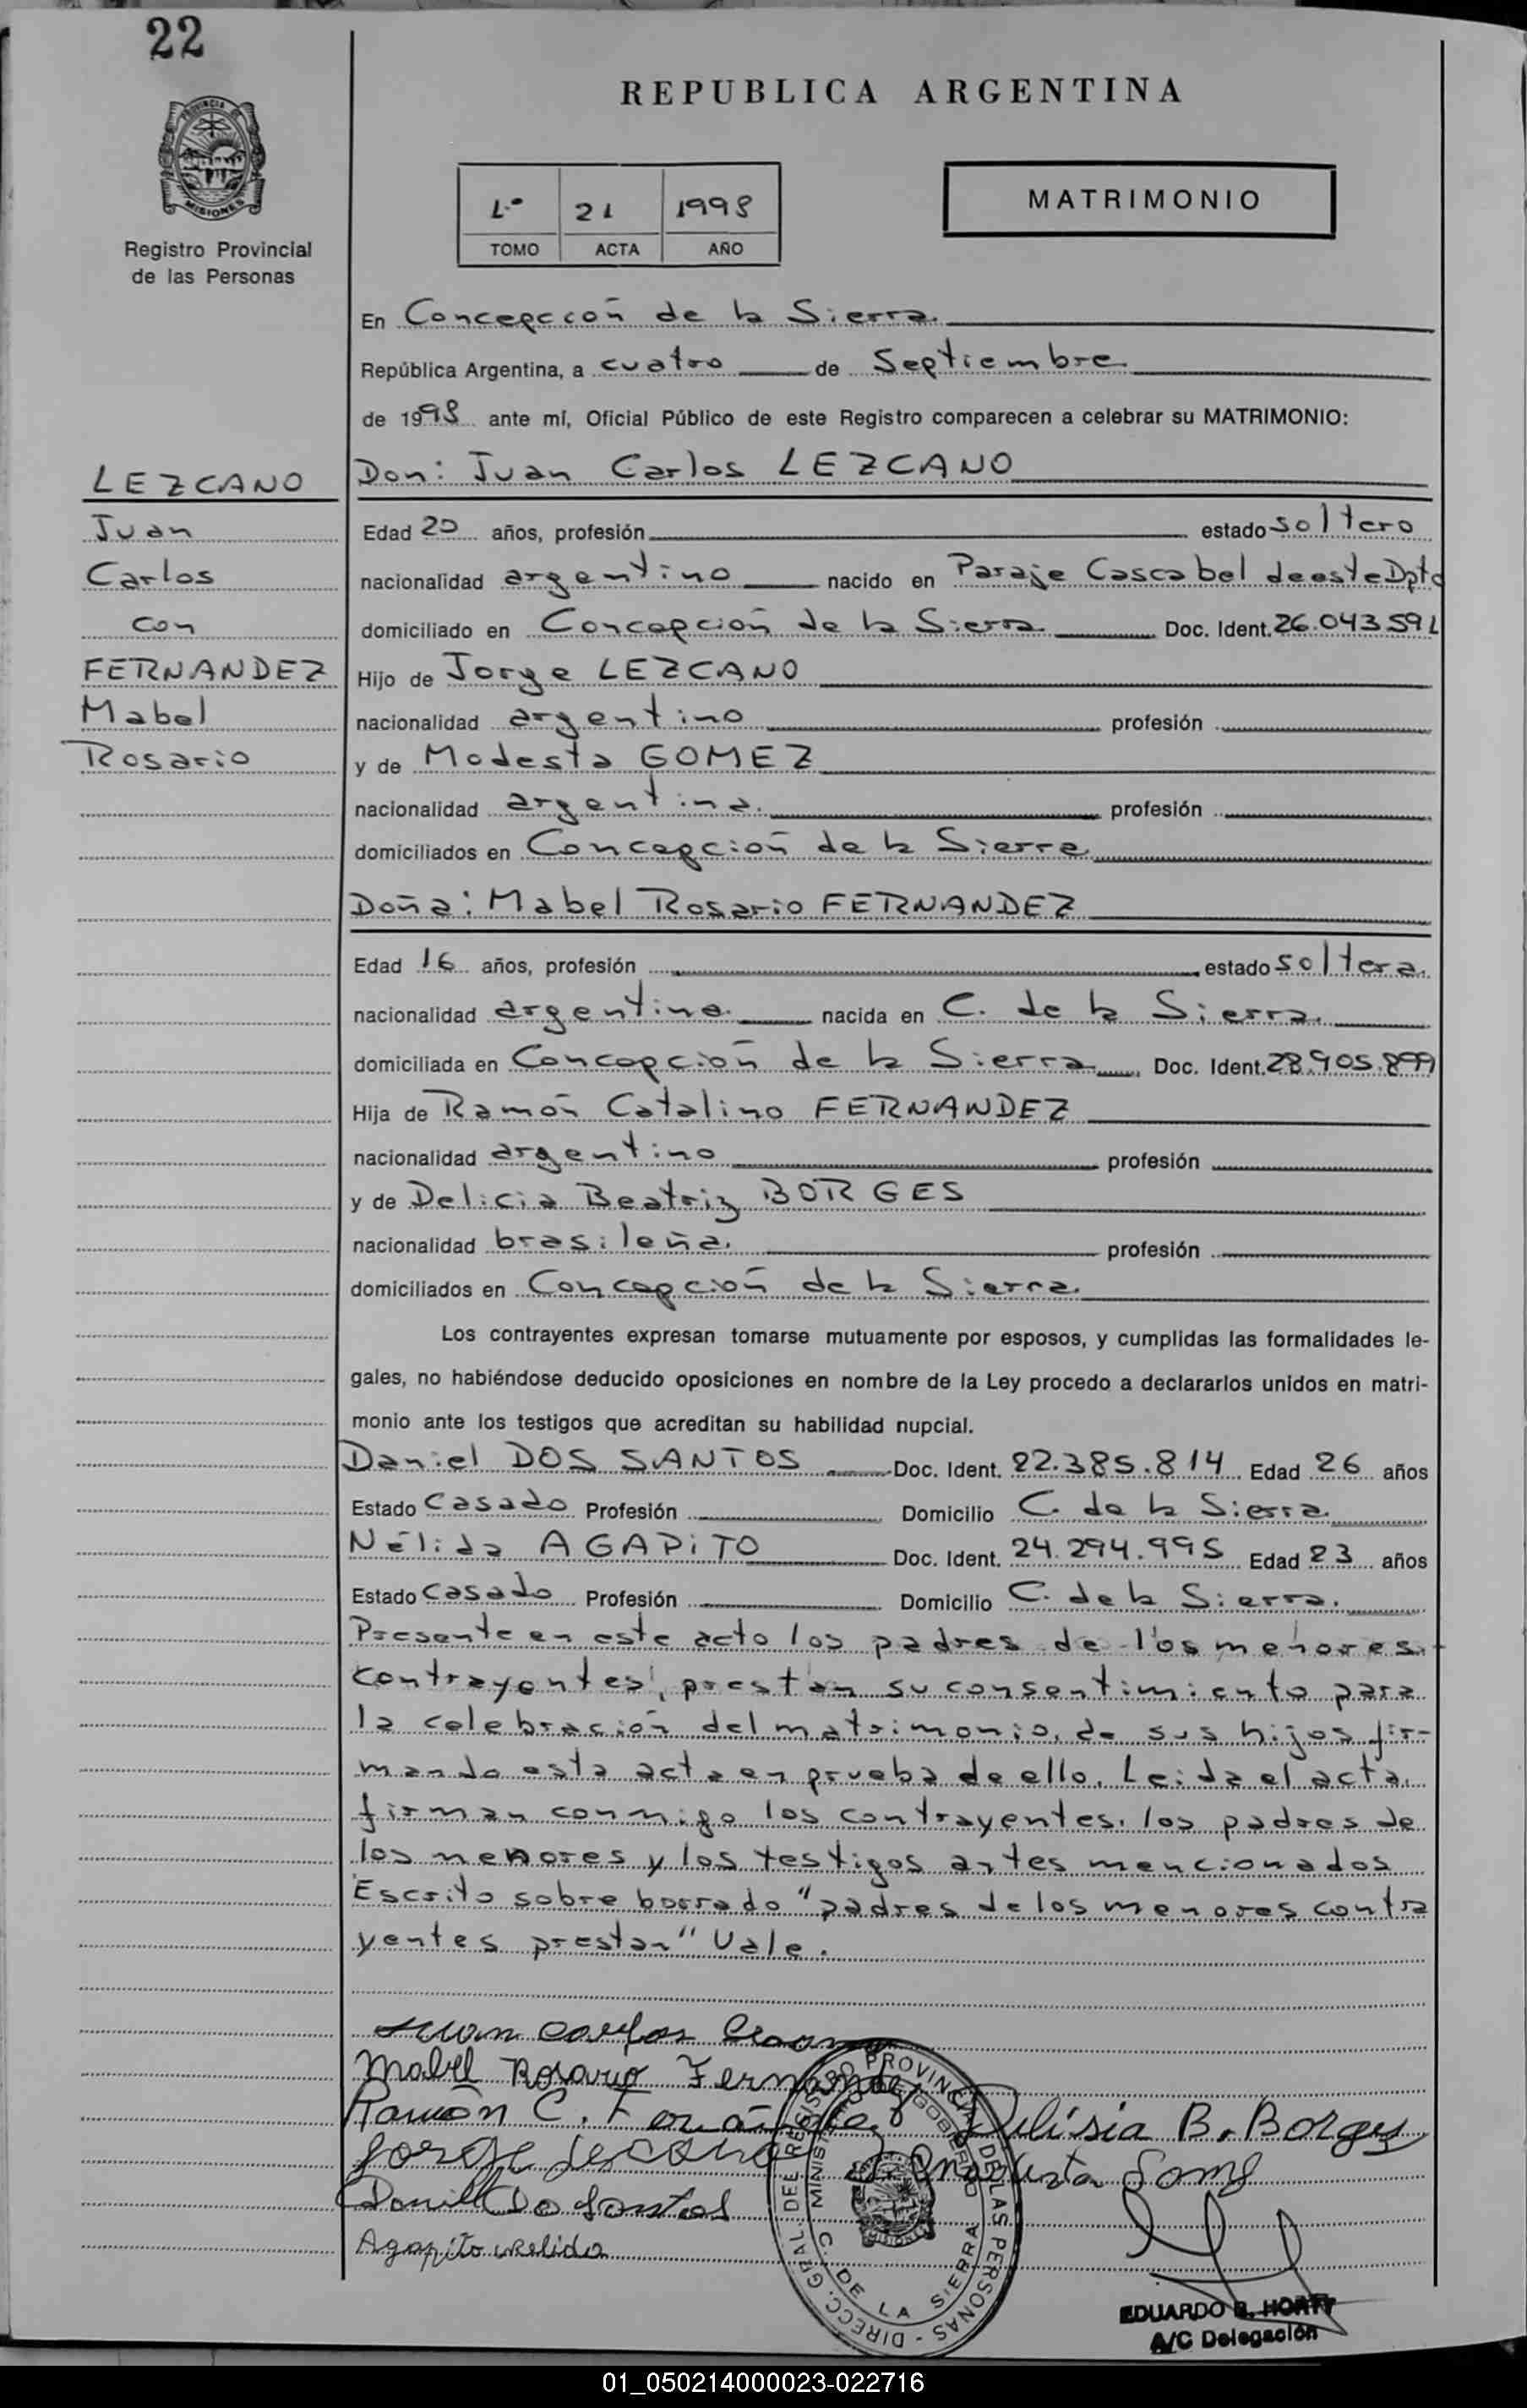 22
REPUBLICA ARGENTINA
PROVINCIA DE
MISIONES
Registro Provincial
de las Personas
1.º 21 1998
TOMO ACTA AÑO
MATRIMONIO
En Concepción de la Sierra.
República Argentina, a cuatro de Septiembre
de 1998 ante mí, Oficial Público de este Registro comparecen a celebrar su MATRIMONIO:
LEZCANO
Juan
Carlos
con
FERNANDEZ
Mabel
Rosario
Don: Juan Carlos LEZCANO
Edad 20 años, profesión estado soltero
nacionalidad argentino nacido en Paraje Cascabel de este Dpto
domiciliado en Concepción de la Sierra Doc. Ident. 26.043.591
Hijo de Jorge LEZCANO
nacionalidad argentino profesión
y de Modesta GOMEZ
nacionalidad argentina. profesión
domiciliados en Concepción de la Sierra
Doña: Mabel Rosario FERNANDEZ
Edad 16 años, profesión estado soltera.
nacionalidad argentina. nacida en C. de la Sierra.
domiciliada en Concepción de la Sierra Doc. Ident. 28.905.899
Hija de Ramón Catalino FERNANDEZ
nacionalidad argentino profesión
y de Delicia Beatriz BORGES
nacionalidad brasileña. profesión
domiciliados en Concepción de la Sierra.
Los contrayentes expresan tomarse mutuamente por esposos, y cumplidas las formalidades le-
gales, no habiéndose deducido oposiciones en nombre de la Ley procedo a declararlos unidos en matri-
monio ante los testigos que acreditan su habilidad nupcial.
Daniel DOS SANTOS Doc. Ident. 22.385.814 Edad 26 años
Estado Casado Profesión Domicilio C. de la Sierra.
Nélida AGAPITO Doc. Ident. 24.294.995 Edad 23 años
Estado Casado Profesión Domicilio C. de la Sierra.
Presente en este acto los padres de los menores
contrayentes, prestan su consentimiento para
la celebración del matrimonio de sus hijos fir-
mando esta acta en prueba de ello. Leida el acta,
firman conmigo los contrayentes, los padres de
los menores y los testigos antes mencionados
Escrito sobre borrado "padres de los menores contra
yentes prestan" Vale.
Juan Carlos
Mabel Rosario Fernandez
Ramón C. Fernández Delisia B. Borges
Jorge Lescano
Daniel Do Santos
Agapito Nelida
DIRECC. GRAL. DEL REGISTRO PROVINCIAL DE LAS PERSONAS
MINISTERIO DE GOBIERNO
C. DE LA SIERRA
EDUARDO HORTT
A/C Delegación
01_050214000023-022716